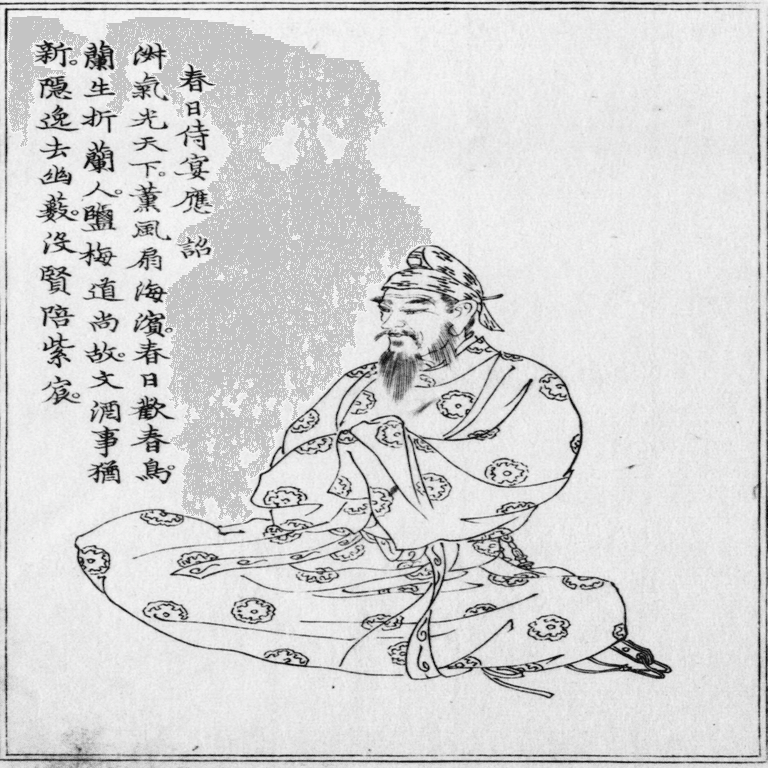 春日侍宴應 詔
淑氣光天下。薰風扇海濱。春日歡春鳥。
蘭生折蘭人。鹽梅道尚故。文酒事猶
新。隱逸去幽藪。沒賢陪紫宸。